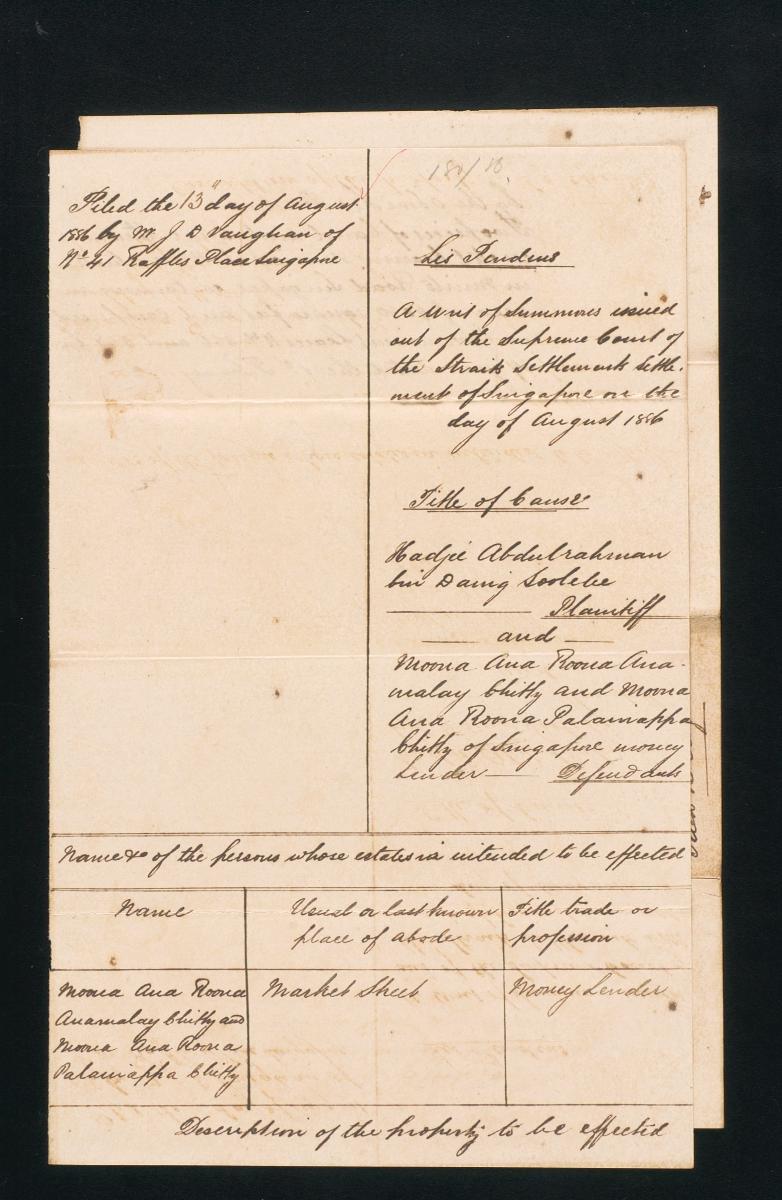 Filed the 13" day of August
1886 by Mr J D Vaughan of
No 41 Raffles Place Singapore
180/86.
Lis Pendens
A Writ of Summons issued
out of the Supreme Court of
the Straits Settlements Settle-
ment of Singapore on the
day of August 1886
Title of Cause
Hadjie Abdulrahman
bin Daing
Plaintiff
and
Moona Ana Roona Ana-
malay Chitty and Moona
Ana Roona Palaniappa
Chitty of Singapore money
Lender Defendants
Name &c of the persons whose estates is intended to be effected
Name
Usual or last known
place of abode
Title trade or
profession
Moona Ana Roona
Anamalay Chitty and
Moona Ana Roona
Palaniappa Chitty
Market Street
Money Lender
Description of the property to be effected